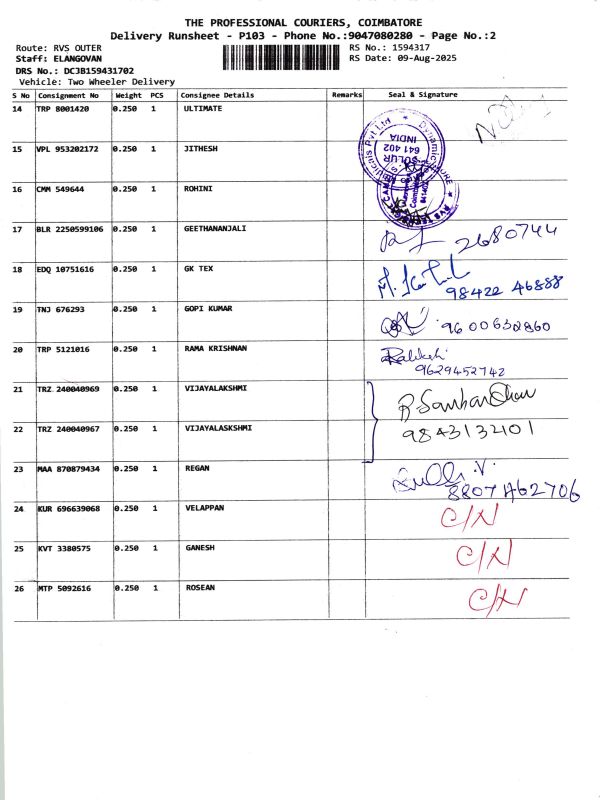 THE PROFESSIONAL COURIERS, COIMBATORE
Delivery Runsheet - P103 - Phone No.:9047080280 - Page No.:2
Route: RVS OUTER RS No.: 1594317
Staff: ELANGOVAN RS Date: 09-Aug-2025
DRS No.: DCJB159431702
Vehicle: Two Wheeler Delivery
S No Consignment No Weight PCS Consignee Details Remarks Seal & Signature
14 TRP 8001420 0.250 1 ULTIMATE
15 VPL 953202172 0.250 1 JITHESH
SULUR 641 402 INDIA
16 CMM 549644 0.250 1 ROHINI
17 BLR 2250599106 0.250 1 GEETHANANJALI 2680744
18 EDQ 10751616 0.250 1 GK TEX
98422 46888
19 TNJ 676293 0.250 1 GOPI KUMAR 9600632860
20 TRP 5121016 0.250 1 RAMA KRISHNAN
9629452742
21 TRZ 240040969 0.250 1 VIJAYALAKSHMI
22 TRZ 240040967 0.250 1 VIJAYALASKSHMI 9843132101
23 MAA 870879434 0.250 1 REGAN
8807462706
24 KUR 696639068 0.250 1 VELAPPAN C/N
25 KVT 3380575 0.250 1 GANESH C/N
26 MTP 5092616 0.250 1 ROSEAN C/N